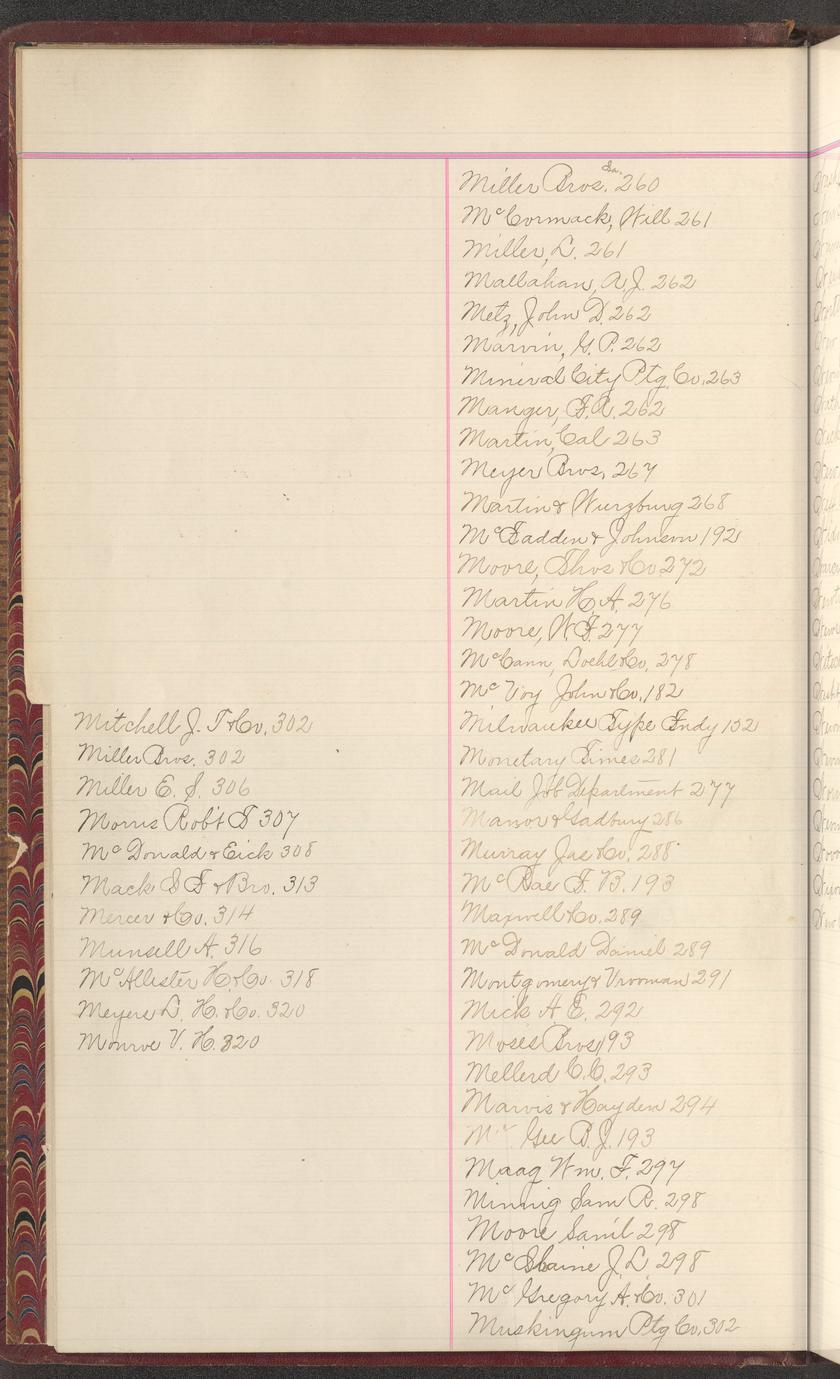 Miller Bros. 260
McCormack, Will 261
Miller, L. 261
Mallahan, A.J. 262
Metz, John D. 262
Marvin, G. P. 262
Mineral City Ptg Co. 263
Manger, F.A. 262
Martin, Cal 263
Meyer Bros. 267
Martin & Wurzburg 268
McFadden & Johnson 192
Moore, Thos & Co 272
Martin H. A. 276
Moore, W.F. 277
McCann, Doehl & Co. 278
McVoy John & Co. 182
Milwaukee Type Fndy 152
Monetary Times 281
Mail Job Department 277
Manson & Gadbury 286
Murray Jas & Co. 288
McRae F. B. 193
Maxwell & Co. 289
McDonald Daniel 289
Montgomery & Vrooman 291
Mick A E. 292
Moses Bros 193
Mellerd C.C. 293
Marvis & Hayden 294
Gee B. J. 193
Maag Wm. F. 297
Minnig Sam R. 298
Moore Saml 298
McSlaine J. L 298
McGregory A. & Co. 301
Muskingum Ptg Co. 302
Mitchell J. T & Co. 302
Miller Bros. 302
Miller E. S. 306
Morris Robt S 307
McDonald & Eick 308
Mack S S & Bro. 313
Mercer & Co. 314
Munsell A. 316
McAllister H. & Co. 318
Meyers L. H. & Co. 320
Monroe V. H. 320